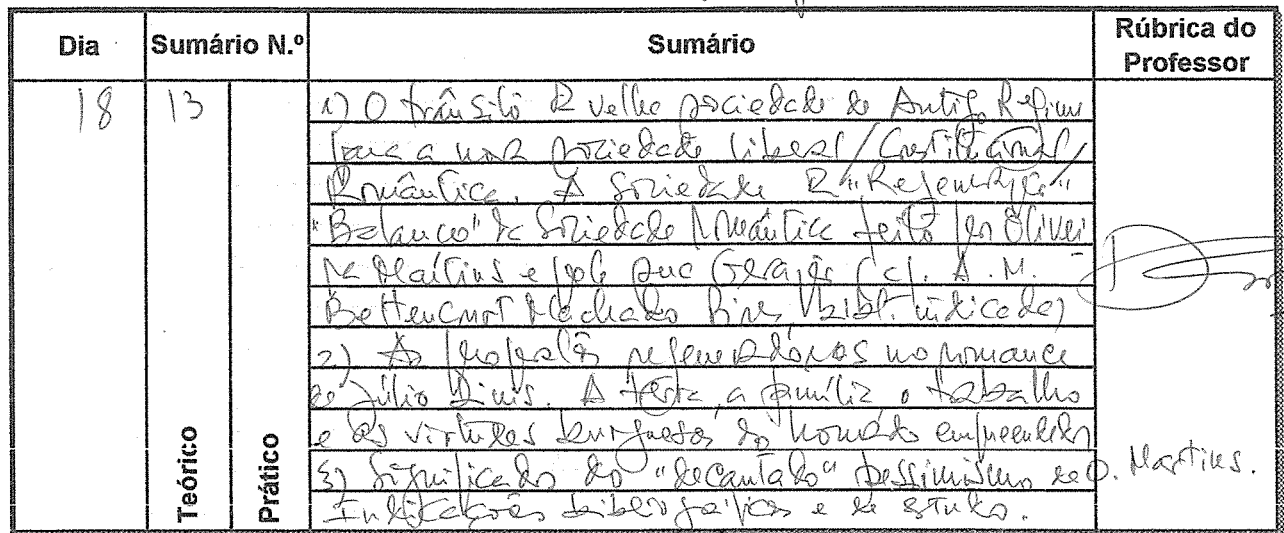 Dia Sumário N.º Sumário Rúbrica do Professor
18 13 1) O trânsito da velha sociedade do Antigo Regime
para a nova sociedade liberal / Constitucional /
Romântica. A Sociedade da "Regeneração"
"Balanço" da Sociedade Romântica feito por Olivei
ra Martins e pela sua Geração (cf. A. M.
Bettencourt Machado Pires bibl. indicada)
2) As propostas regeneradoras no romance
de Júlio Dinis. A terra, a família o trabalho
e as virtudes burguesas do homem empreendedor
3) Significado do "decantado" pessimismo de O. Martins.
Indicações bibliográficas e de estudo.
Teórico
Prático